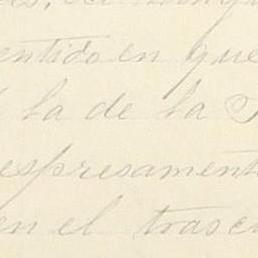 entido en que
la de la
espresament
en el trasc